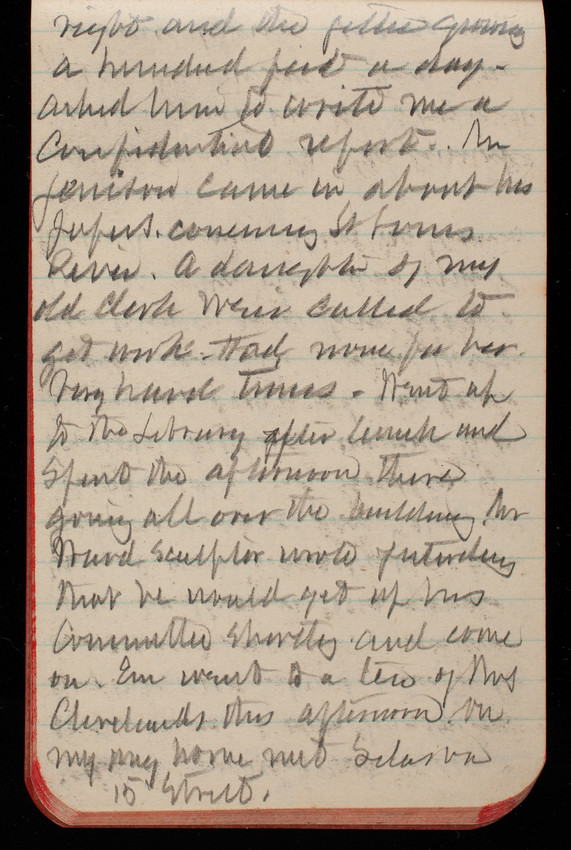 right and the jetties growing
a hundred feet a day.
asked him to write me a
Confidential report. Mr
Jenison came in about his
papers. concerning St Louis
River. A daughter of my
old Clerk Weir called to
get work. Had none for her.
Very hard times. Went up
to the Library after lunch and
Spent the afternoon there
going all over the building. Mr
Ward Sculptor wrote yesterday
that he would get up his
Committee shortly and come
on. Em went to a tea of Mrs
Clevelands this afternoon. On
my way home met on
15 Street.